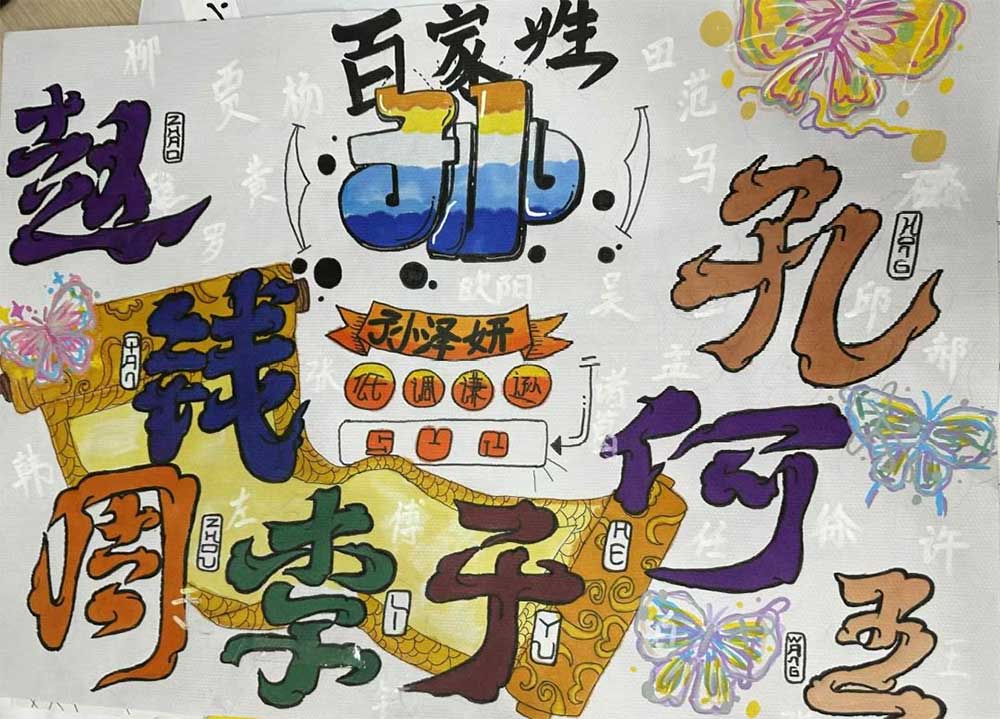 百家姓
柳
贾
杨
田
范
孙
赵
ZHAO
黄
罗
马
孔
KONG
欧阳
吴
邱
钱
QIAN
孙泽妍
张
低调谦逊
孟
郝
诸葛
SUN
韩
何
HE
周
ZHOU
左
李
LI
傅
于
YU
任
徐
许
王
WANG